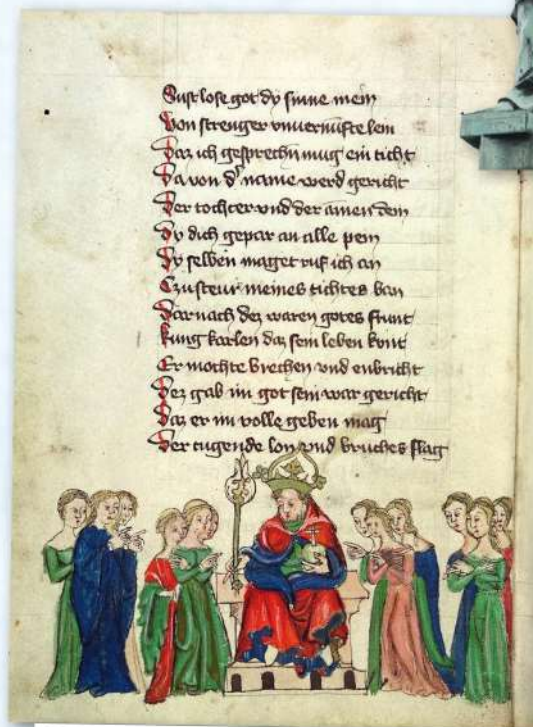 Sust lose got dy sinne mein
Von strenger vnuernufte lein
Daz ich gesprechn mug ein ticht
Da von d' name werd gericht
Der tochter vnd der amen dein
Dy dich gepar an alle pein
Dy selben maget ruf ich an
Czu steur meines tichtes ban
Darnach dez waren gotes frunt
kung karlen daz sein leben kunt
Er mochte brechen vnd enbricht
Dez gab im got sein war gericht
Daz er im volle geben mag
Der tugende lon vnd bruches slag